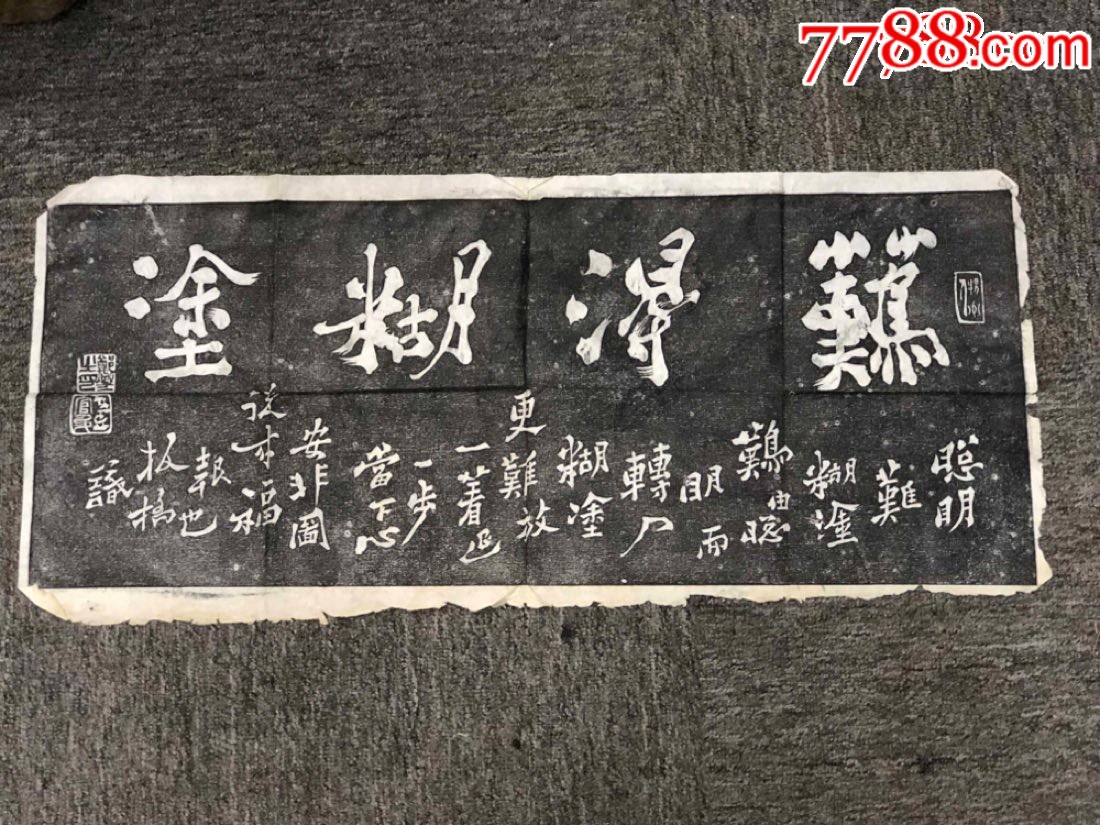 7788.com
難得糊塗
聰明
難
糊塗
難由聰
明而
轉入
糊塗
更難放
一著退
一步
當下心
安非圖
後来福
報也
板橋
識